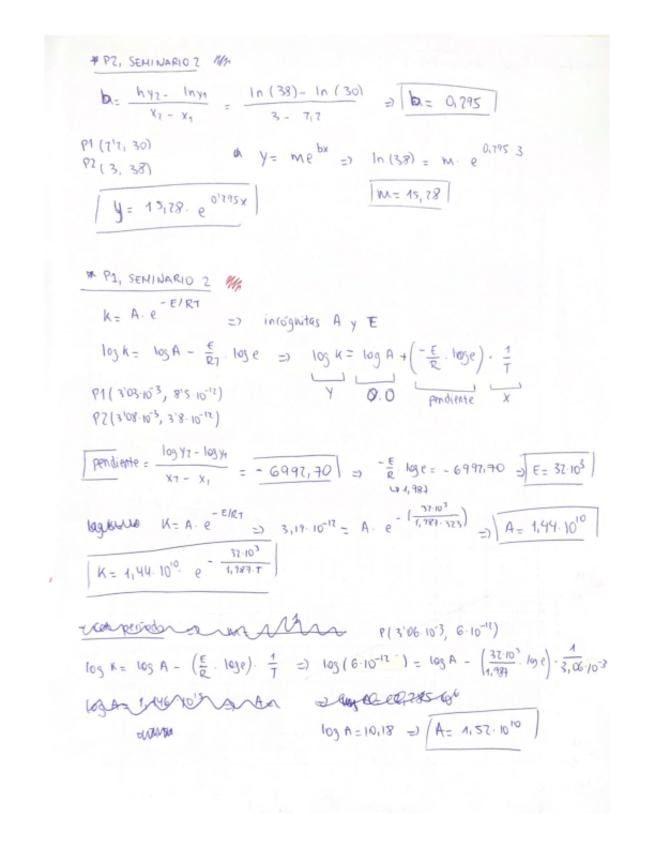 * P2, SEMINARIO 2
b = (ln y2 - ln y1) / (x2 - x1) = (ln (38) - ln (30)) / (3 - 2,2) => b = 0,295
P1 (2'2, 30)
P2 (3, 38)
y = me^bx => ln (38) = m · e^0,295·3
m = 15,28
y = 15,28 · e^0'295x
* P1, SEMINARIO 2
K = A · e^-E/RT => incógnitas A y E
log K = log A - E/RT · log e => log K = log A + (-E/R · log e) · 1/T
Y O.O pendiente X
P1 (3'03·10^-3, 8'5·10^-12)
P2 (3'08·10^-3, 3'8·10^-12)
pendiente = (log y2 - log y1) / (x2 - x1) = -6992,70 => -E/R · log e = -6992,70 => E = 32·10^3
↳ 1,987
K = A · e^-E/RT => 3,19·10^-12 = A · e^-(32·10^3 / 1,987·323) => A = 1,44·10^10
K = 1,44·10^10 · e^-(32·10^3 / 1,987·T)
P (3'06·10^-3, 6·10^-12)
log K = log A - (E/R · log e) · 1/T => log (6·10^-12) = log A - (32·10^3 / 1,987 · log e) · 1 / 3,06·10^-3
log A = 10,18 => A = 1,52·10^10